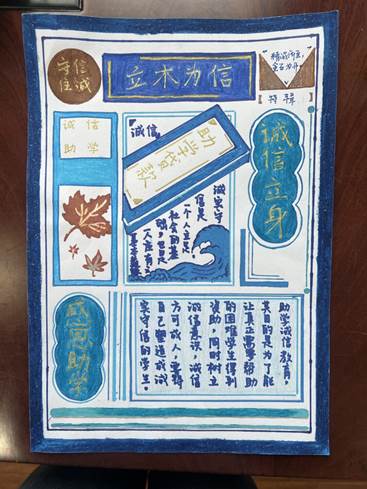 守信
住诚
立木为信
精诚所至,
金石为开
诚信
助学
诚信
助学贷款
诚实守
信是
一个人立足
社会的基
础,也是
诚信立身
感恩助学
助学诚信教育,
其目的是为了能
让真正需要帮助
的困难学生得到
资助,同时树立
诚信意识,诚信
方可成人,要将
自己塑造成诚
实守信的学生。